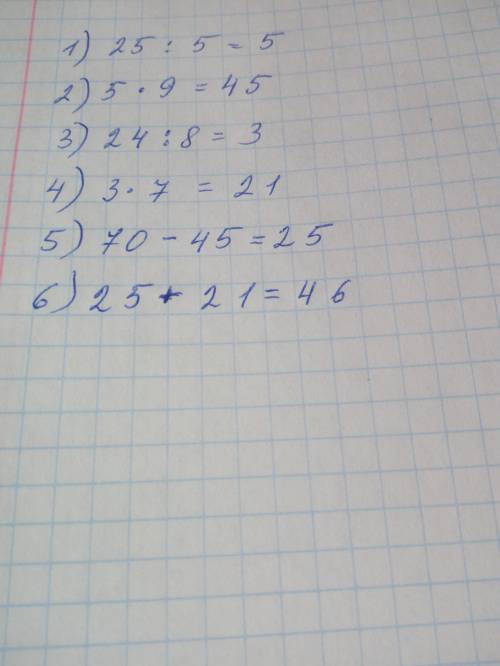 1) 25 : 5 = 5
2) 5 · 9 = 45
3) 24 : 8 = 3
4) 3 · 7 = 21
5) 70 - 45 = 25
6) 25 + 21 = 46